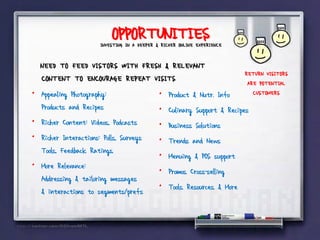 OPPORTUNITIES
INVESTING IN A DEEPER & RICHER ONLINE EXPERIENCE
NEED TO FEED VISTORS WITH FRESH & RELEVANT
CONTENT TO ENCOURAGE REPEAT VISITS
RETURN VISITORS
ARE POTENTIAL
CUSTOMERS
• Appealing Photography:
Products and Recipes
• Richer Content: Videos, Podcasts
• Richer Interactions: Polls, Surveys
Tools, Feedback Ratings
• More Relevance:
Addressing & tailoring messages
& interactions to segments/prefs
• Product & Nutr. Info
• Culinary Support & Recipes
• Business Solutions
• Trends and News
• Menuing & POS support
• Promos, Cross-selling
• Tools, Resources & More